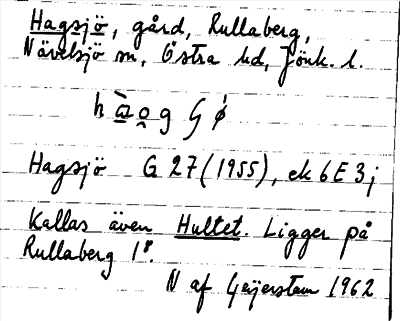 Hagsjö, gård, Rullaberg,
Nävelsjö sn, Östra hd, Jönk. l.
Hagsjö G 27 (1955), ek 6E 3j
Kallas även Hultet. Ligger på
Rullaberg 1⁸.
N af Geijerstam 1962